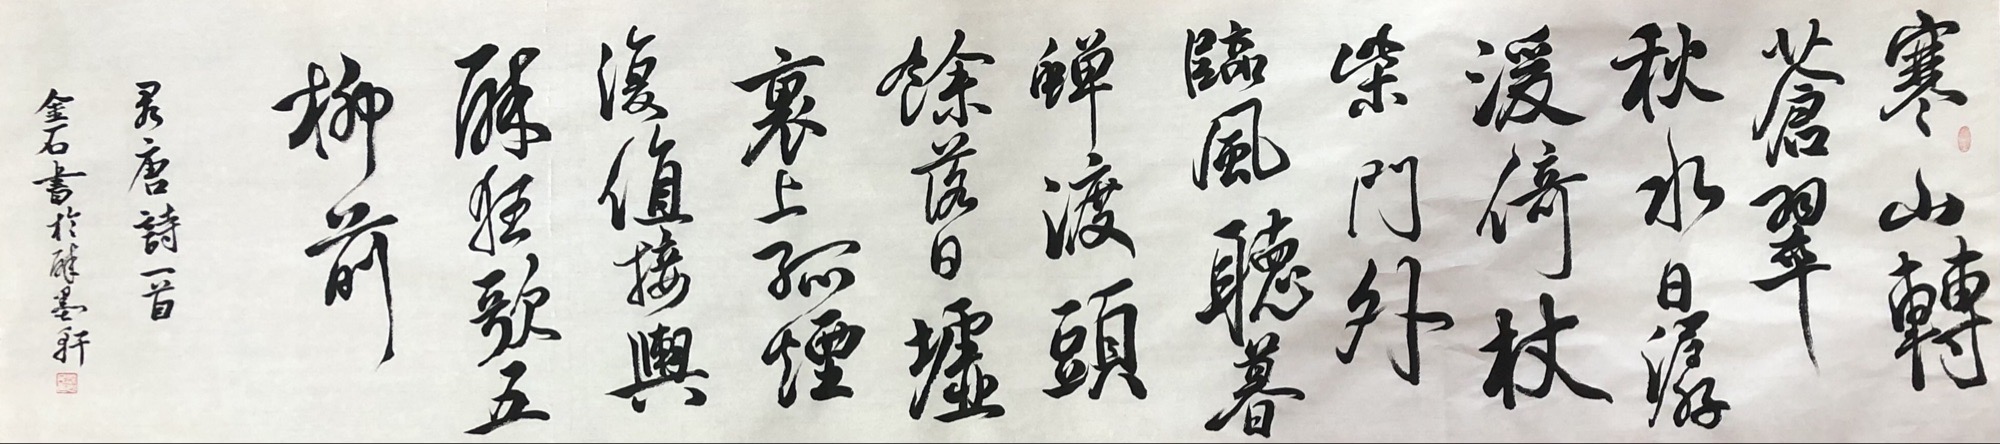 寒山轉
蒼翠
秋水日潺
湲倚杖
柴門外
臨風聽暮
蟬渡頭
餘落日墟
裏上孤煙
復值接輿
醉狂歌五
柳前
唐詩一首
金石書於醉墨軒